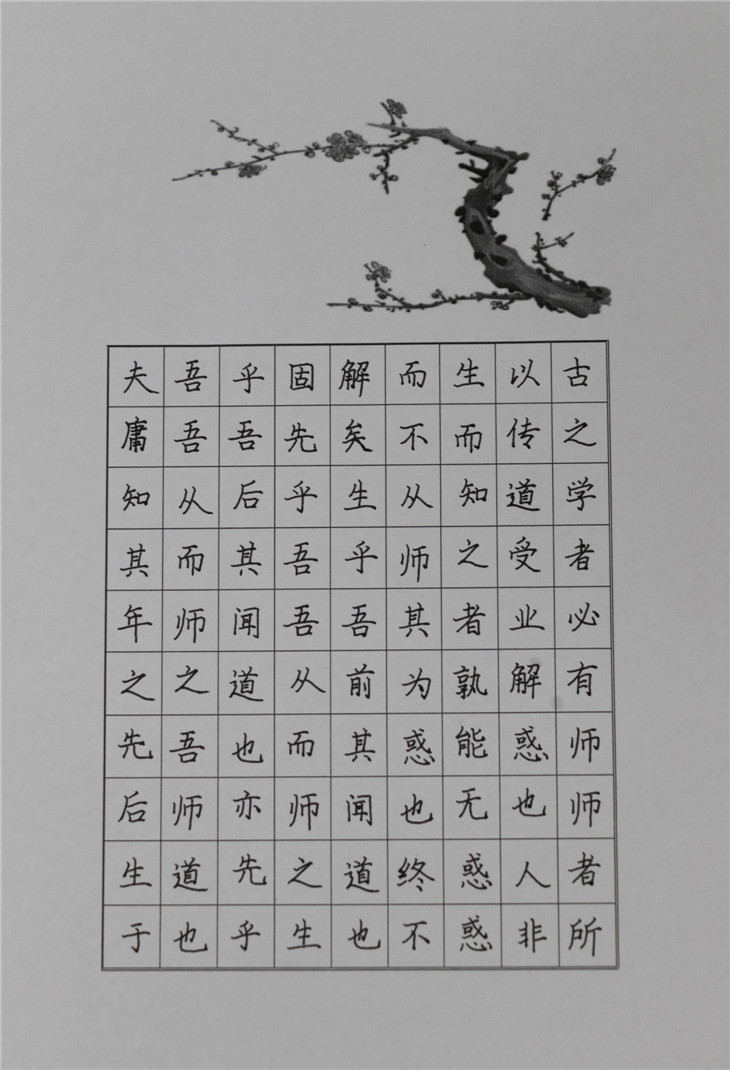 古之学者必有师师者所
以传道受业解惑也人非
生而知之者孰能无惑惑
而不从师其为惑也终不
解矣生乎吾前其闻道也
固先乎吾吾从而师之生
乎吾后其闻道也亦先乎
吾吾从而师之吾师道也
夫庸知其年之先后生于